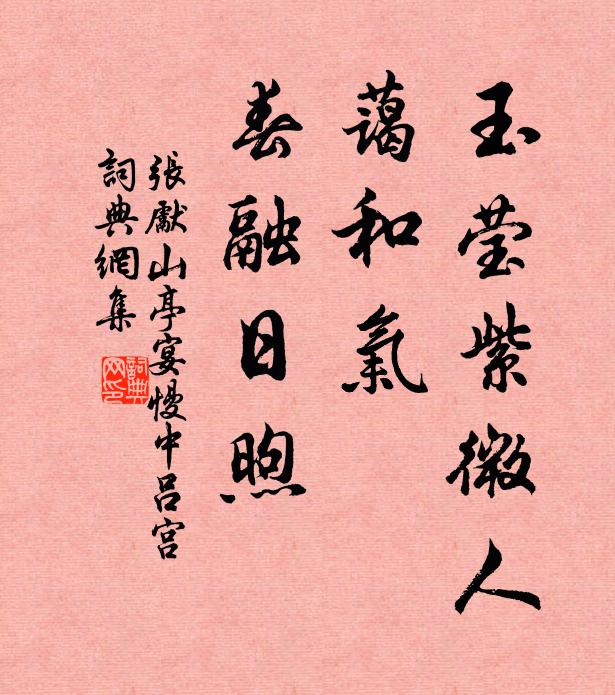 玉莹紫微人
藹和氣
春融日煦
張獻山亭宴慢中呂宮
詞典網集
詞典
网印